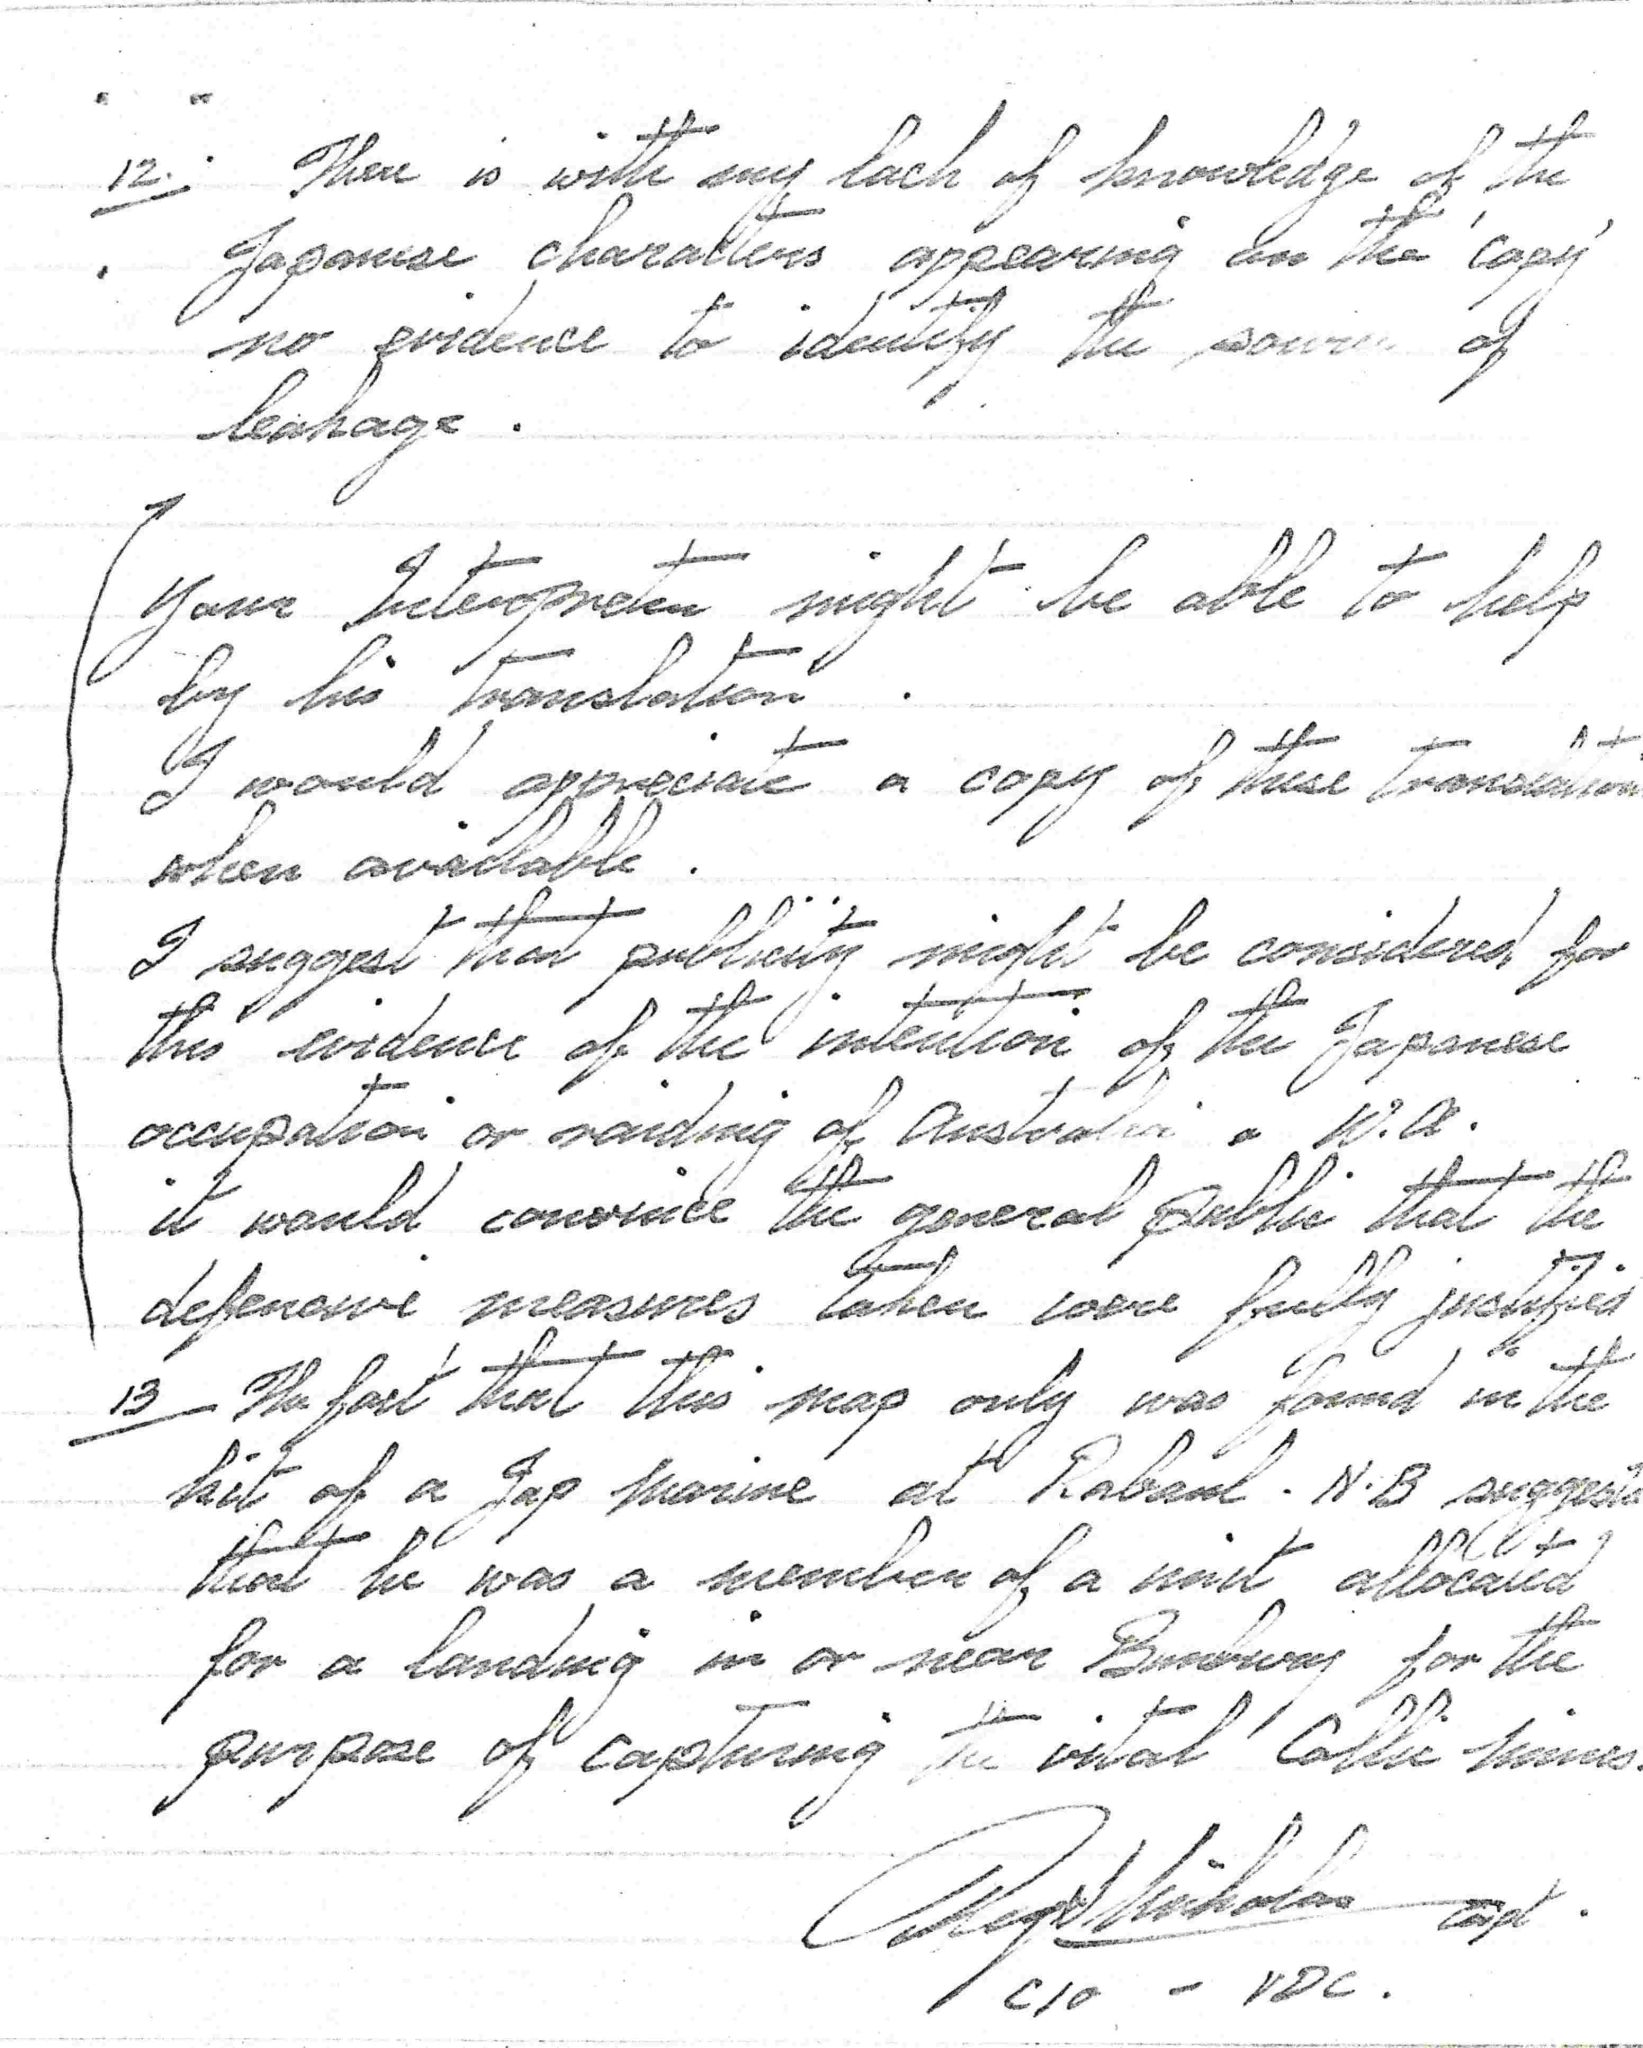 12. There is with my lack of knowledge of the
Japanese characters appearing on the 'copy'
no evidence to identify the source of
leakage.
Your Interpreter might be able to help
by his translation.
I would appreciate a copy of these translation
when available.
I suggest that publicity might be considered for
this evidence of the intention of the Japanese
occupation or raiding of Australia o W.A.
it would convince the general public that the
defensive measures taken were fully justified
13 The fact that this map only was found in the
kit of a Jap Marine at Rabaul. N.B suggests
that he was a member of a unit allocated
for a landing in or near Bunbury for the
purpose of capturing the vital Collie Mines.
Nicholas Capt.
VDC.